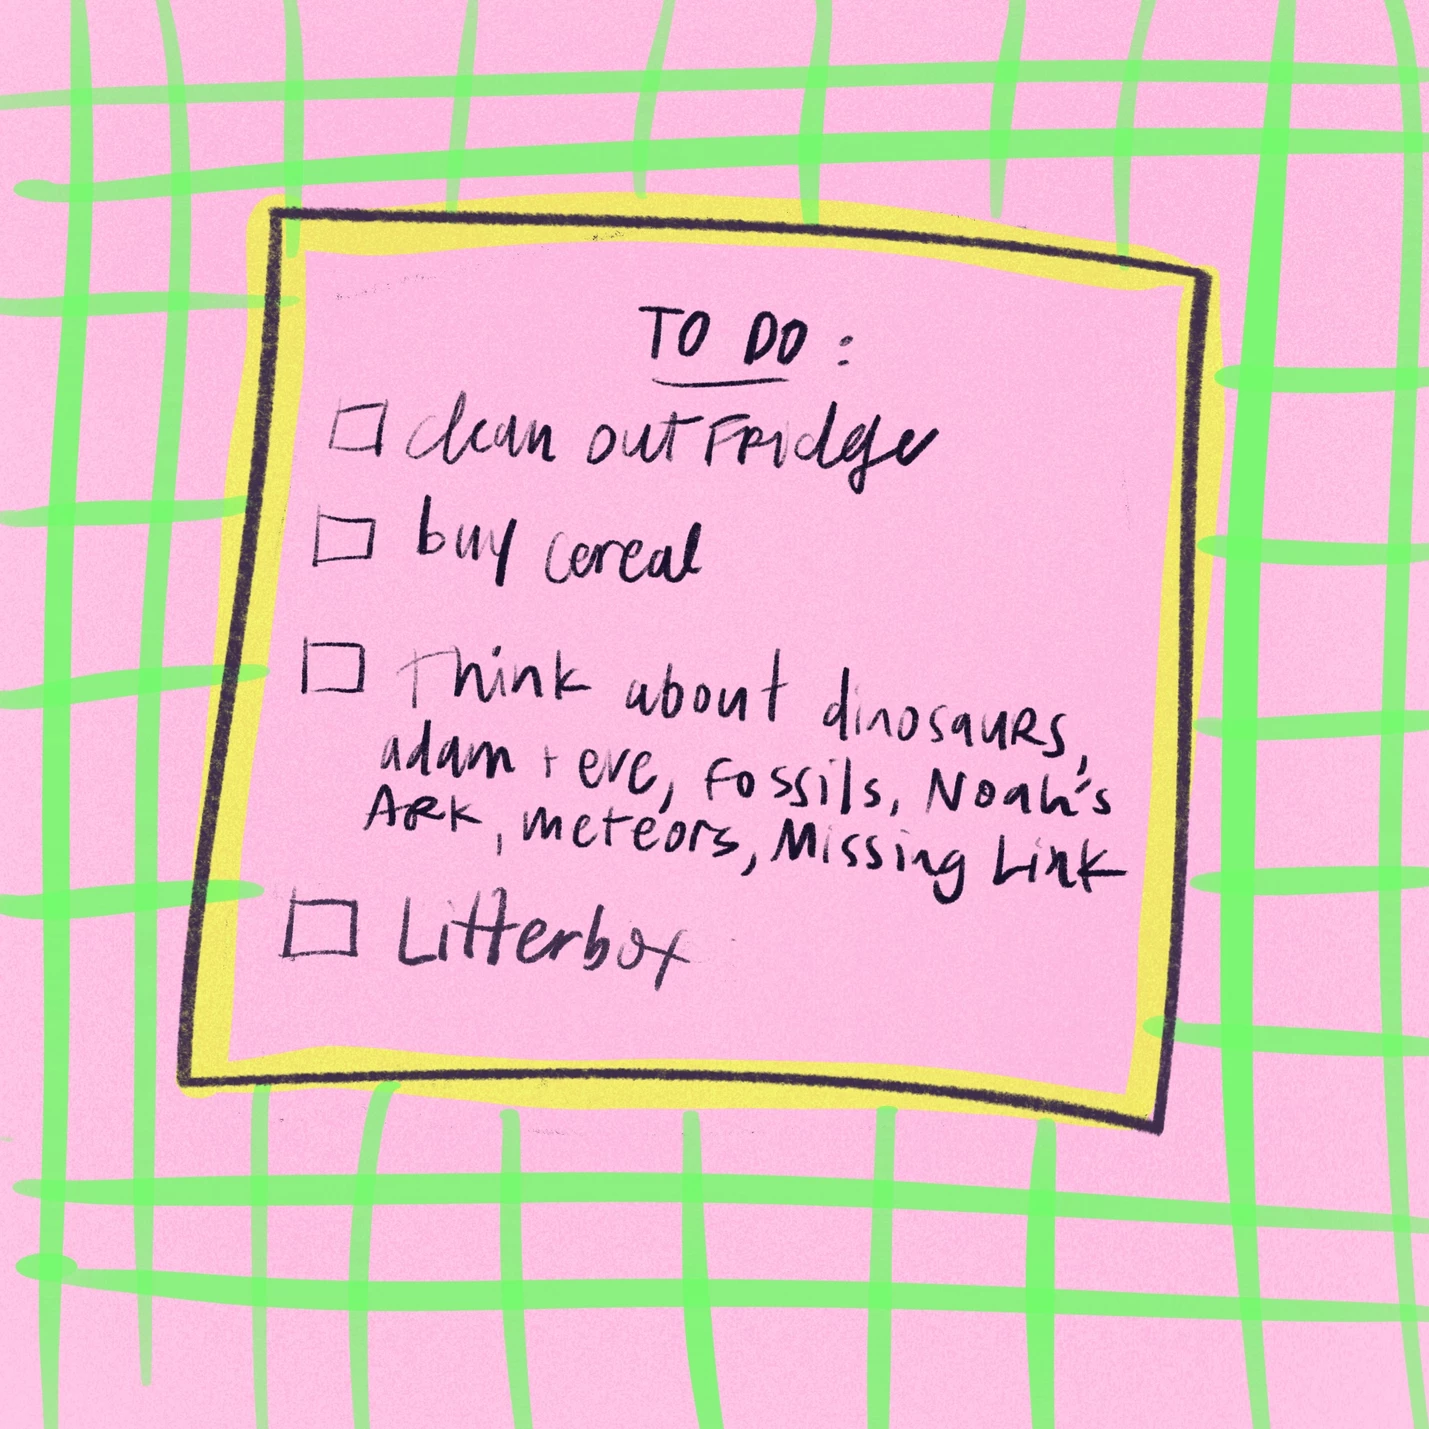 TO DO:
clean out Fridge
buy cereal
Think about dinosaurs,
adam + eve, Fossils, Noah's
Ark, meteors, Missing Link
Litterbox